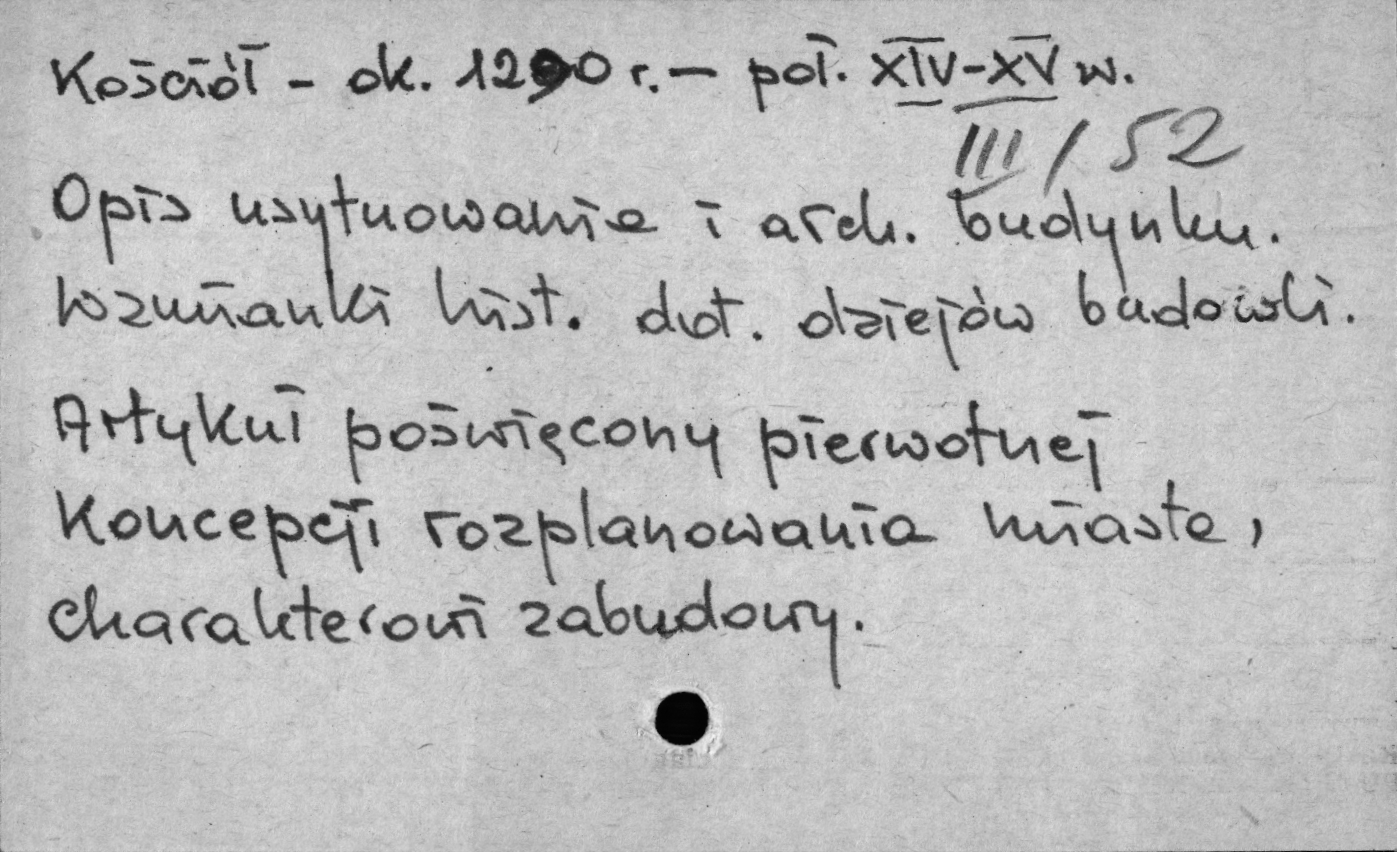 Kościół - ok. 1290 r. - poł. XIV-XV w.
III / 52
Opis usytuowania i arch. budynku.
Wzmianki hist. dot. dziejów budowli.
Artykuł poświęcony pierwotnej
koncepcji rozplanowania miasta,
charakterowi zabudowy.